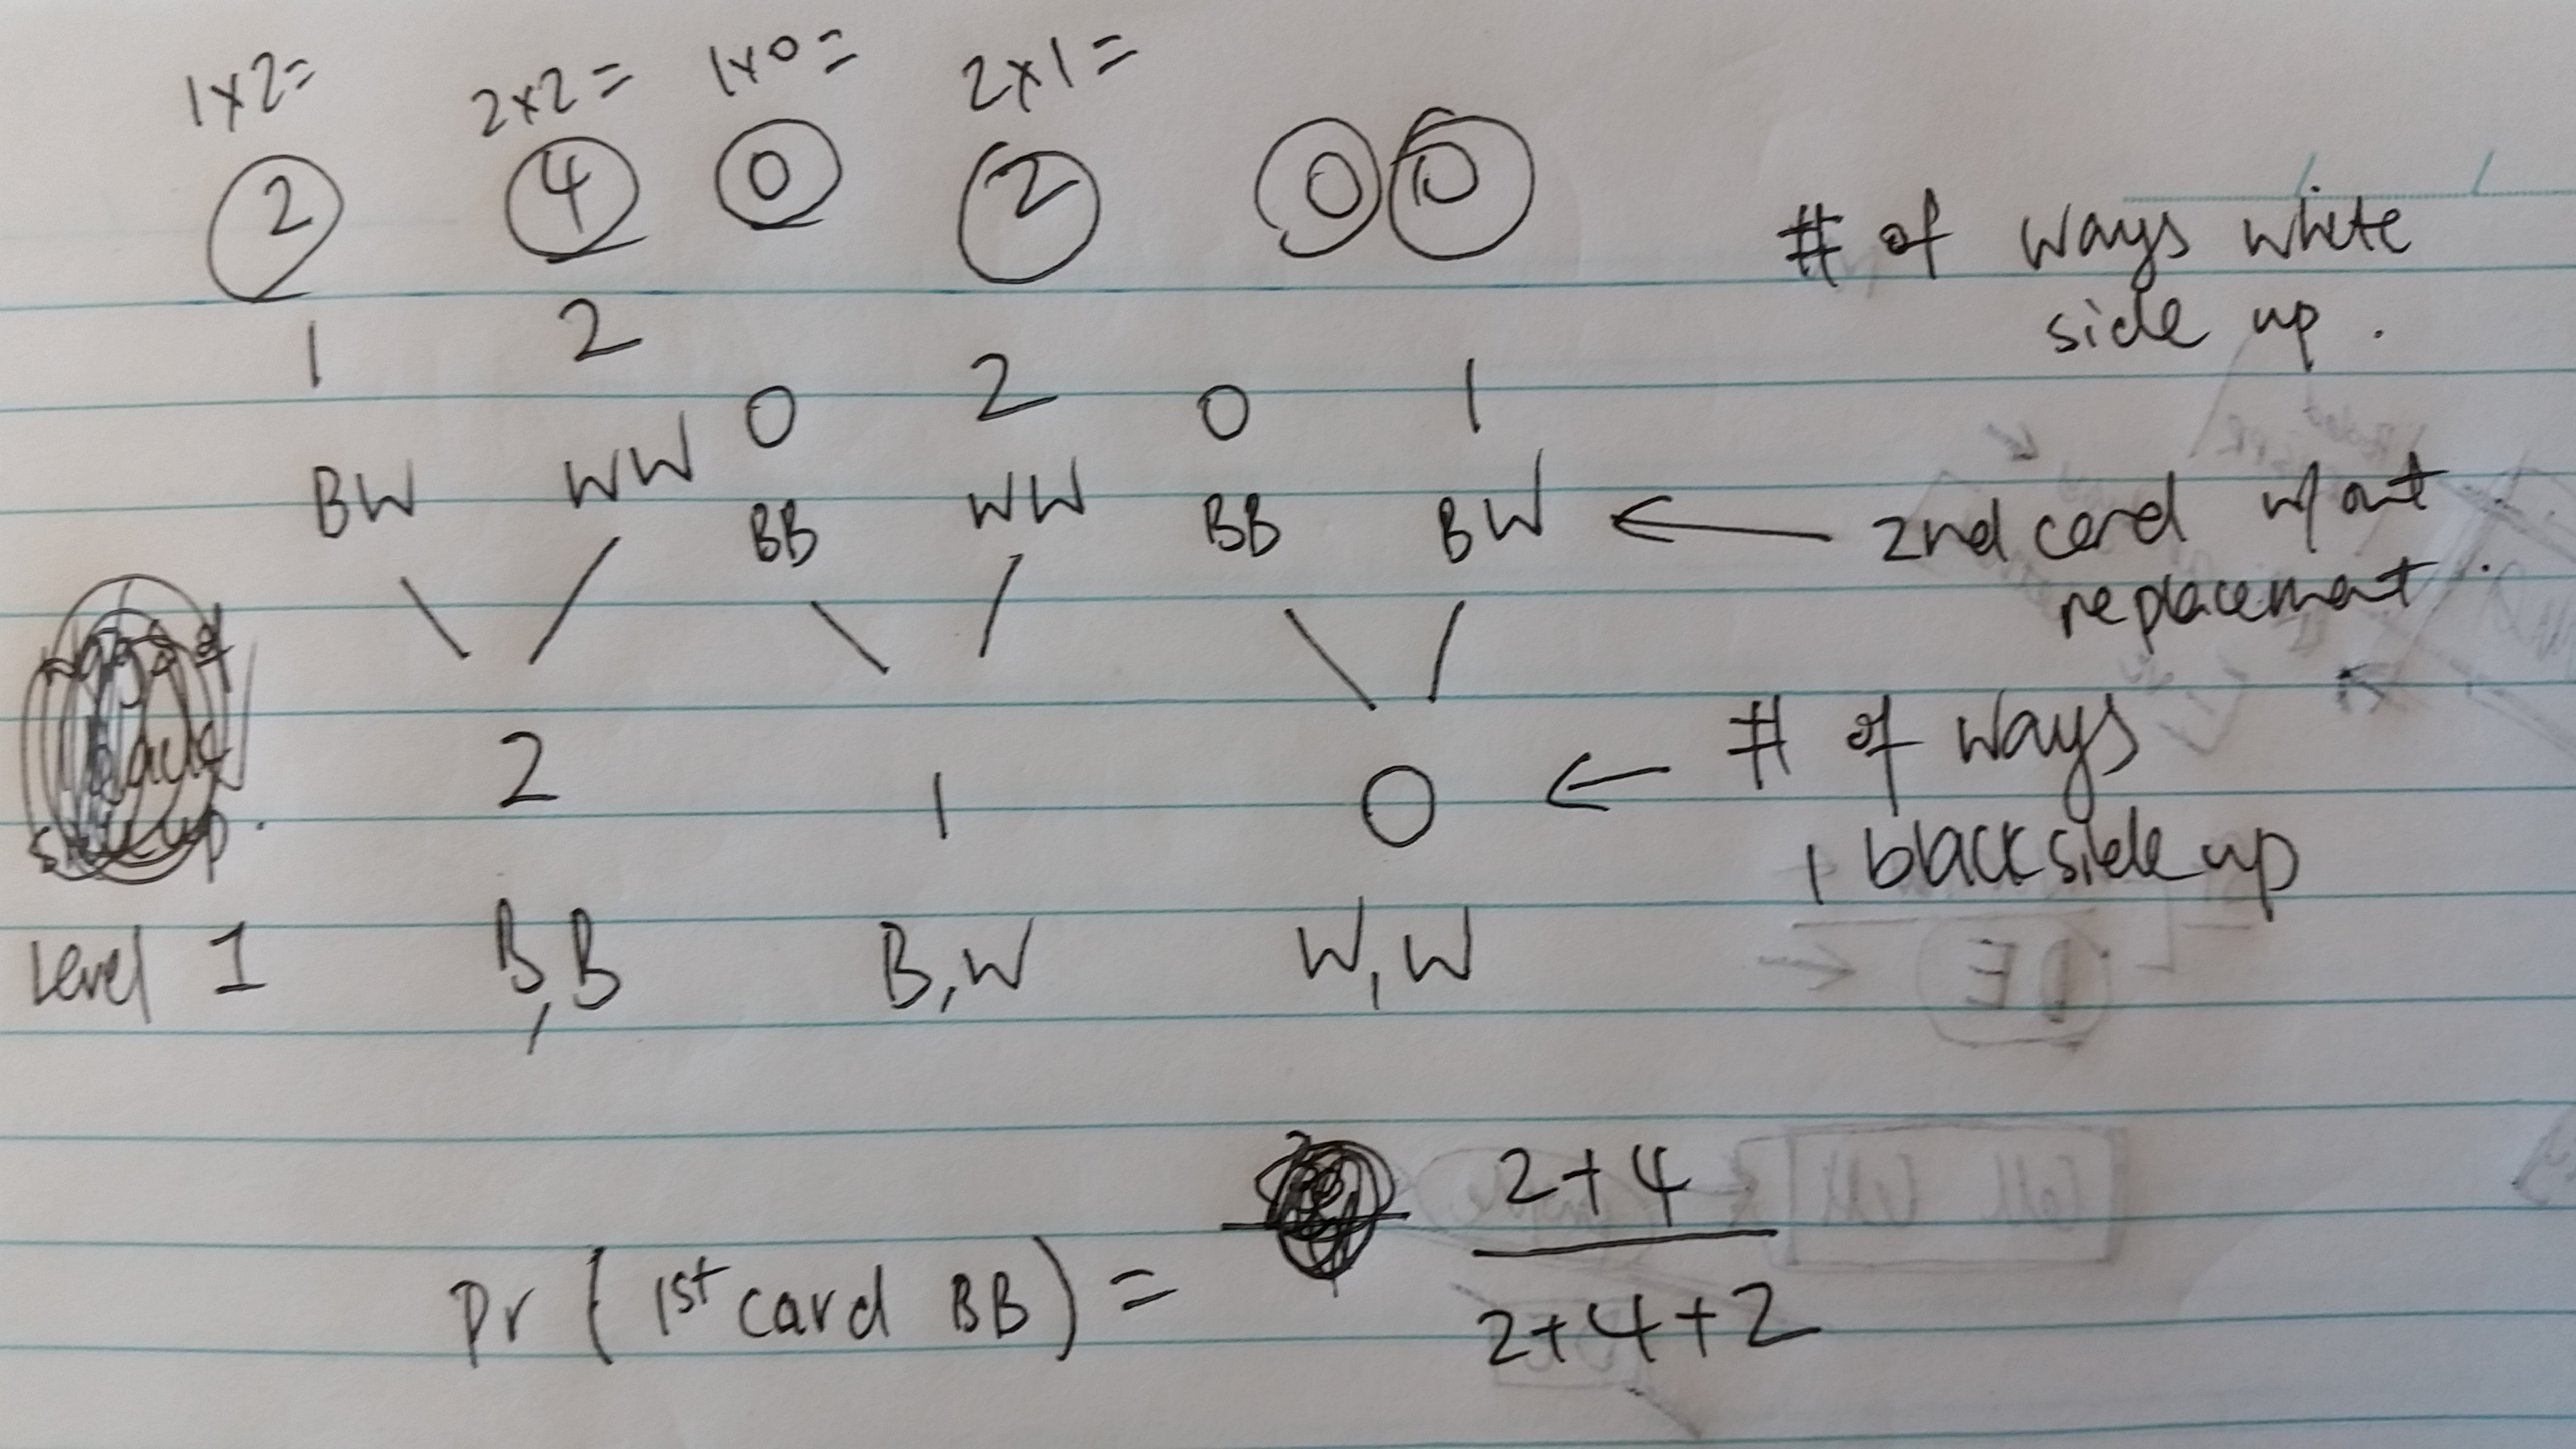 1x2= 2x2= 1x0= 2x1=
2 4 0 2 0 0
# of ways white
side up.
1 2 0 2 0 1
BW WW BB WW BB BW
← 2nd card w/out
replacement.
2 1 0 ← # of ways
1 black side up
side up.
Level 1 B,B B,W W,W
Pr (1st card BB) = 2+4
2+4+2